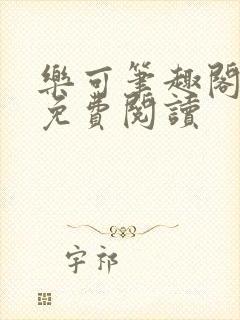 樂可筆趣閣
免費閱讀
宇祁